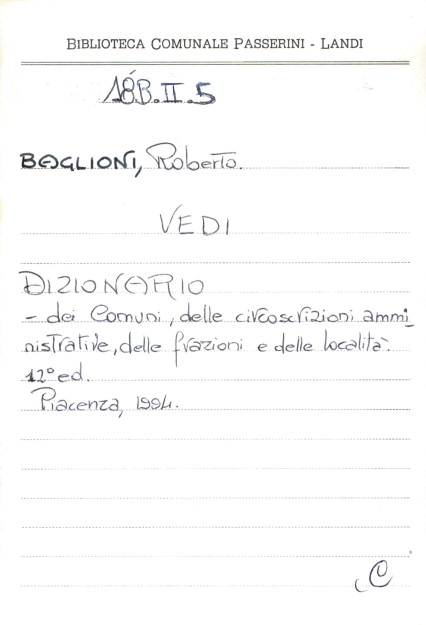 BIBLIOTECA COMUNALE PASSERINI - LANDI
18B.II.5
BAGLIONI, Roberto.
VEDI
DIZIONARIO
- dei Comuni, delle circoscrizioni ammi_
nistrative, delle frazioni e delle località.
12° ed.
Piacenza, 1994.
C